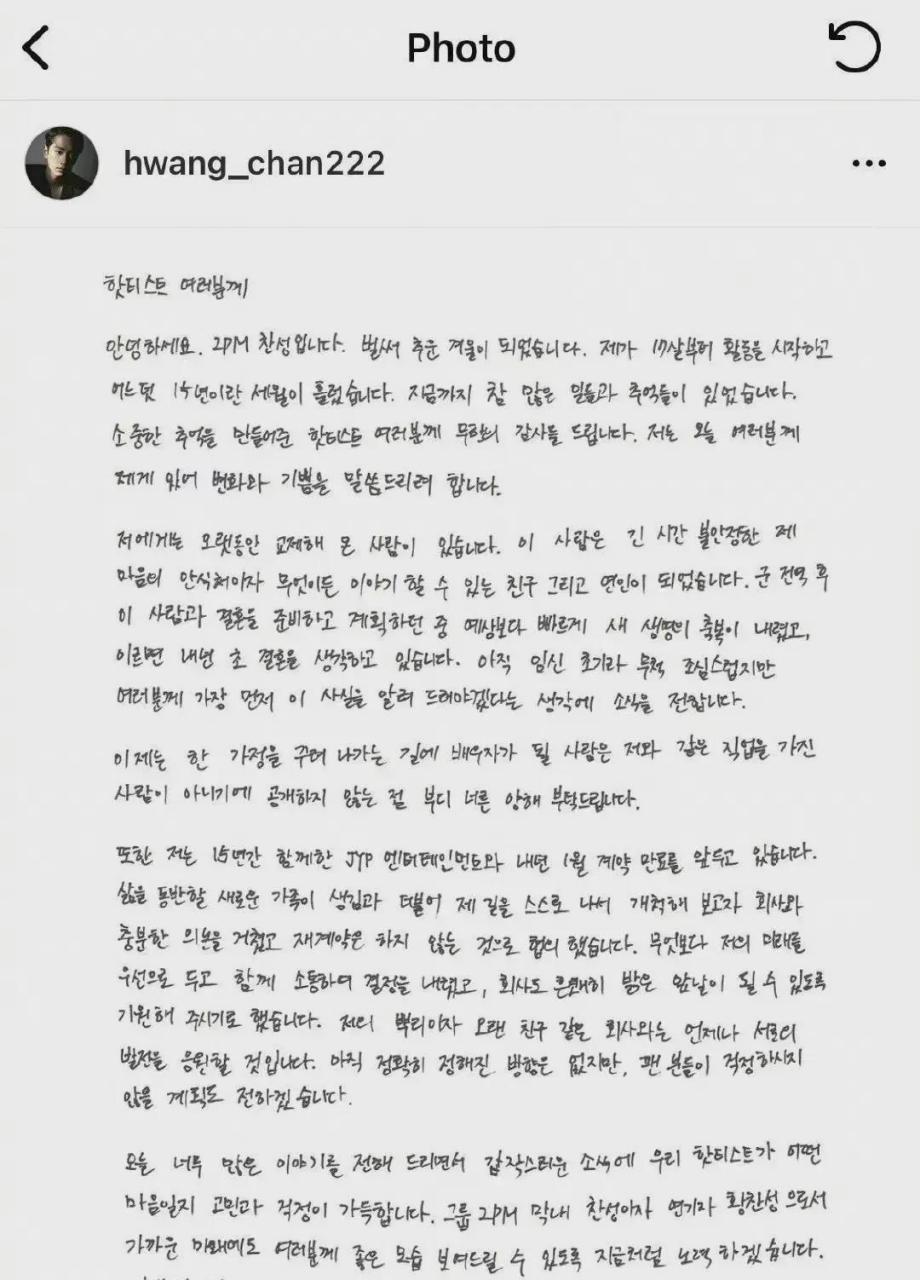 Photo
hwang_chan222
핫티스트 여러분께
안녕하세요. 2PM 찬성입니다. 벌써 추운 겨울이 되었습니다. 제가 17살부터 활동을 시작하고
어느덧 15년이란 세월이 흘렀습니다. 지금까지 참 많은 일들과 추억들이 있었습니다.
소중한 추억을 만들어준 핫티스트 여러분께 무한히 감사를 드립니다. 저는 오늘 여러분께
제게 있어 변화와 기쁨을 말씀드리려 합니다.
저에게는 오랫동안 교제해 온 사람이 있습니다. 이 사람은 긴 시간 불안정한 제
마음의 안식처이자 무엇이든 이야기 할 수 있는 친구 그리고 연인이 되었습니다. 군 전역 후
이 사람과 결혼을 준비하고 계획하던 중 예상보다 빠르게 새 생명의 축복이 내렸고,
이르면 내년 초 결혼을 생각하고 있습니다. 아직 임신 초기라 무척 조심스럽지만
여러분께 가장 먼저 이 사실을 알려 드려야겠다는 생각에 소식을 전합니다.
이제는 한 가정을 꾸려 나가는 길에 배우자가 될 사람은 저와 같은 직업을 가진
사람이 아니기에 공개하지 않는 점 부디 너른 양해 부탁드립니다.
또한 저는 15년간 함께한 JYP 엔터테인먼트와 내년 1월 계약 만료를 앞두고 있습니다.
삶을 동반할 새로운 가족이 생김과 더불어 제 길을 스스로 나서 개척해 보고자 회사와
충분한 의논을 거쳤고 재계약은 하지 않는 것으로 협의 했습니다. 무엇보다 저의 미래를
우선으로 두고 함께 소통하며 결정을 내렸고, 회사도 흔쾌히 밝은 앞날이 될 수 있도록
기원해 주시기로 했습니다. 저의 뿌리이자 오랜 친구 같은 회사와는 언제나 서로의
발전을 응원할 것입니다. 아직 정확히 정해진 방향은 없지만, 팬 분들이 걱정하시지
않을 계획도 전하겠습니다.
오늘 너무 많은 이야기를 전해 드리면서 갑작스러운 소식에 우리 핫티스트가 어떤
마음일지 고민과 걱정이 가득합니다. 그룹 2PM 막내 찬성이자 연기자 황찬성으로서
가까운 미래에도 여러분께 좋은 모습 보여드릴 수 있도록 지금처럼 노력 하겠습니다.